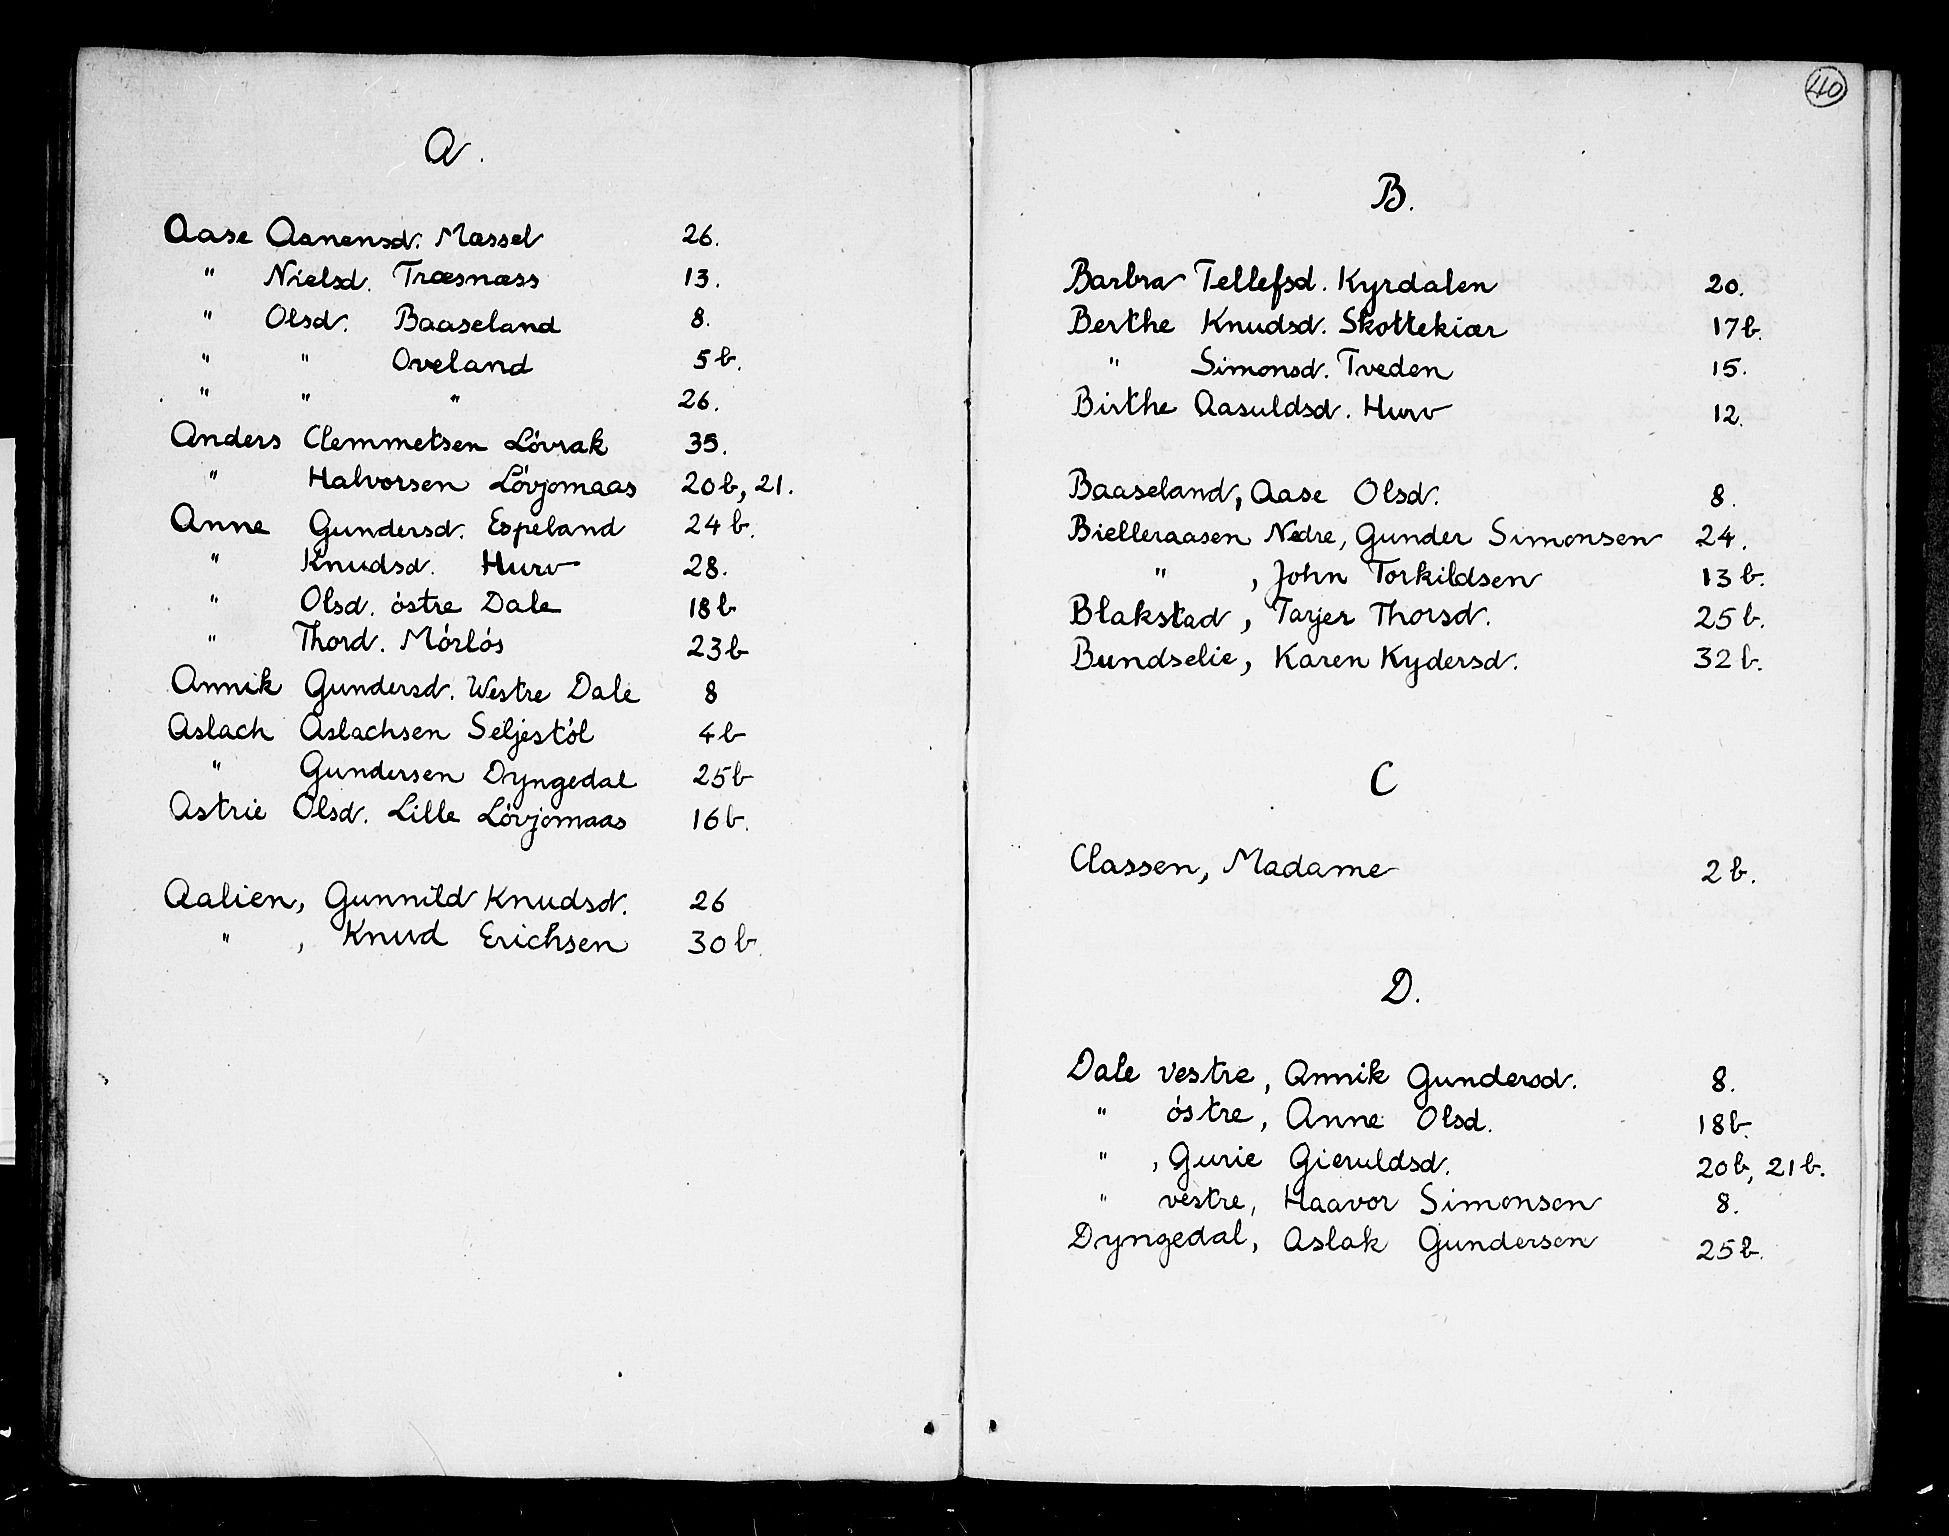 A.
Aase Aanensd. Massel 26.
" Nielsd. Træsnæss 13.
" Olsd. Baaseland 8.
" " Oveland 5b.
" " " 26.
Anders Clemmetsen Lóvrak 35.
" Halvorsen Lóvjomaas 20b, 21.
Anne Gundersd. Espeland 24b.
" Knudsd. Hurv 28.
" Olsd. óstre Dale 18b
" Thord. Mórlós 23b
Annik Gundersd. Westre Dale 8
Aslach Aslachsen Seljestól 4b
" Gundersen Dyngedal 25b
Astrie Olsd. Lille Lóvjomaas 16b.
Aalien, Gunnild Knudsd. 26
" , Knud Erichsen 30b.
40
B.
Barbra Tellefsd. Kyrdalen 20.
Berthe Knudsd. Skottekiær 17b.
" Simonsd. Tveden 15.
Birthe Aasuldsd. Hurv 12.
Baaseland, Aase Olsd. 8.
Bielleraasen Nedre, Gunder Simonsen 24.
" , John Torkildsen 13b.
Blakstad, Tarjer Thorsd. 25b.
Bundselie, Karen Kydersd. 32b.
C
Classen, Madame 2b.
D.
Dale vestre, Annik Gundersd. 8.
" óstre, Anne Olsd. 18b.
" , Gurie Gieruldsd. 20b, 21b.
" vestre, Haavor Simonsen 8.
Dyngedal, Aslak Gundersen 25b.